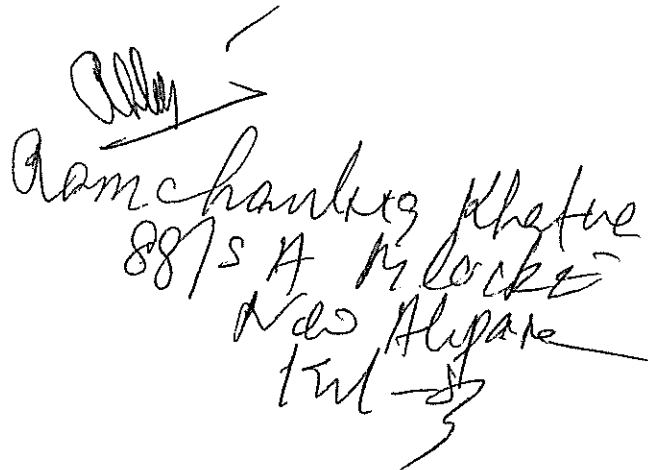 Ramchandra Khatua
88/5 A Block E
New Alipore
Kol - 53